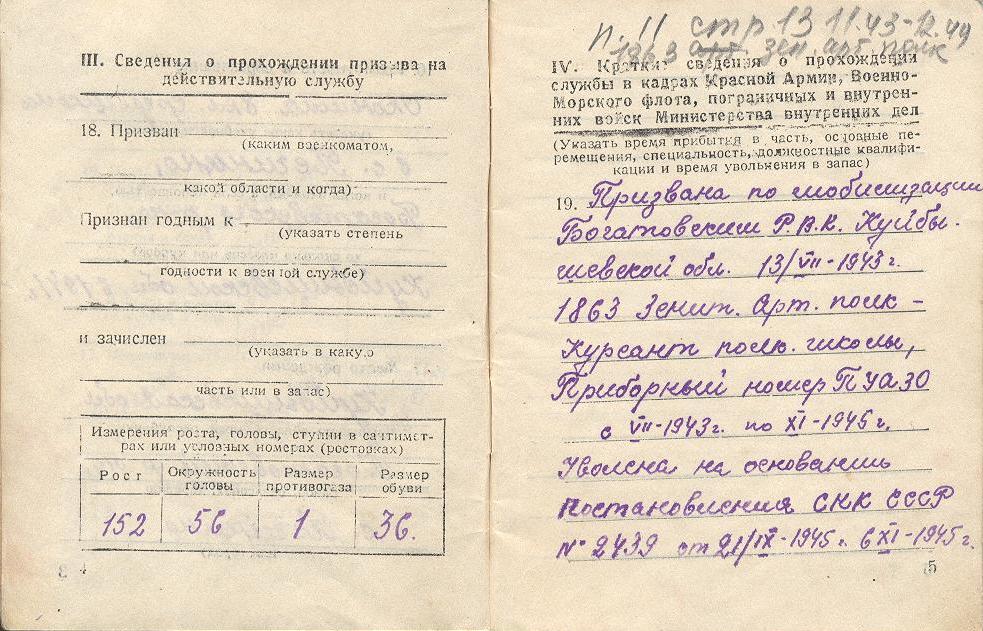 III. Сведения о прохождении призыва на
действительную службу
18. Призван
(каким военкоматом,
какой области и когда)
Признан годным к
(указать степень
годности к военной службе)
и зачислен
(указать в какую
часть или в запас)
Измерения роста, головы, ступни в сантимет-
рах или условных номерах (ростовках)
Рост Окружность головы Размер противогаза Размер обуви
152 56 1 36.
4
п. 11 стр 13 11.43-12.44
1863 арт. зен. арт. полк
IV. Краткие сведения о прохождении
службы в кадрах Красной Армии, Военно-
Морского флота, пограничных и внутрен-
них войск Министерства внутренних дел
(Указать время прибытия в часть, основные пе-
ремещения, специальность, должностные квалифи-
кации и время увольнения в запас)
19. Призвана по мобилизации
Богатовским Р.В.К. Куйбы-
шевской обл. 13/VII-1943 г.
1863 Зенит. Арт. полк –
Курсант полк. школы,
Приборный номер ПУАЗО
с VII-1943 г. по XI-1945 г.
Уволена на основании
Постановления СНК СССР
№ 2439 от 21/IX-1945 г. 6 XI-1945 г.
5